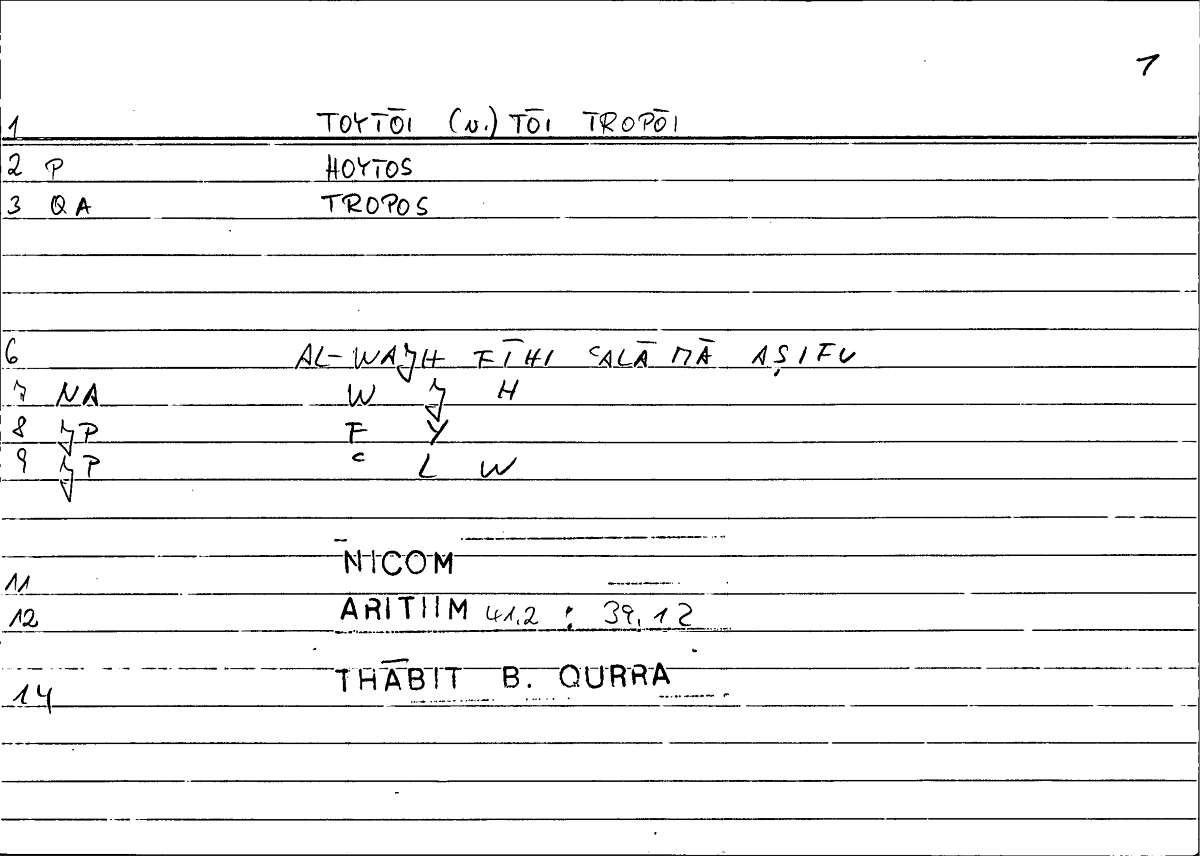 1
1 TOYTŌI (v.) TŌI TROPŌI
2 P HOYTOS
3 QA TROPOS
6 AL-WAJH FĪHI ʿALĀ MĀ AṢIFU
7 NA W J H
8 JP F Y
9 JP ʿ L W
11 NICOM
12 ARITHM 41,2 : 39,12
14 THĀBIT B. QURRA